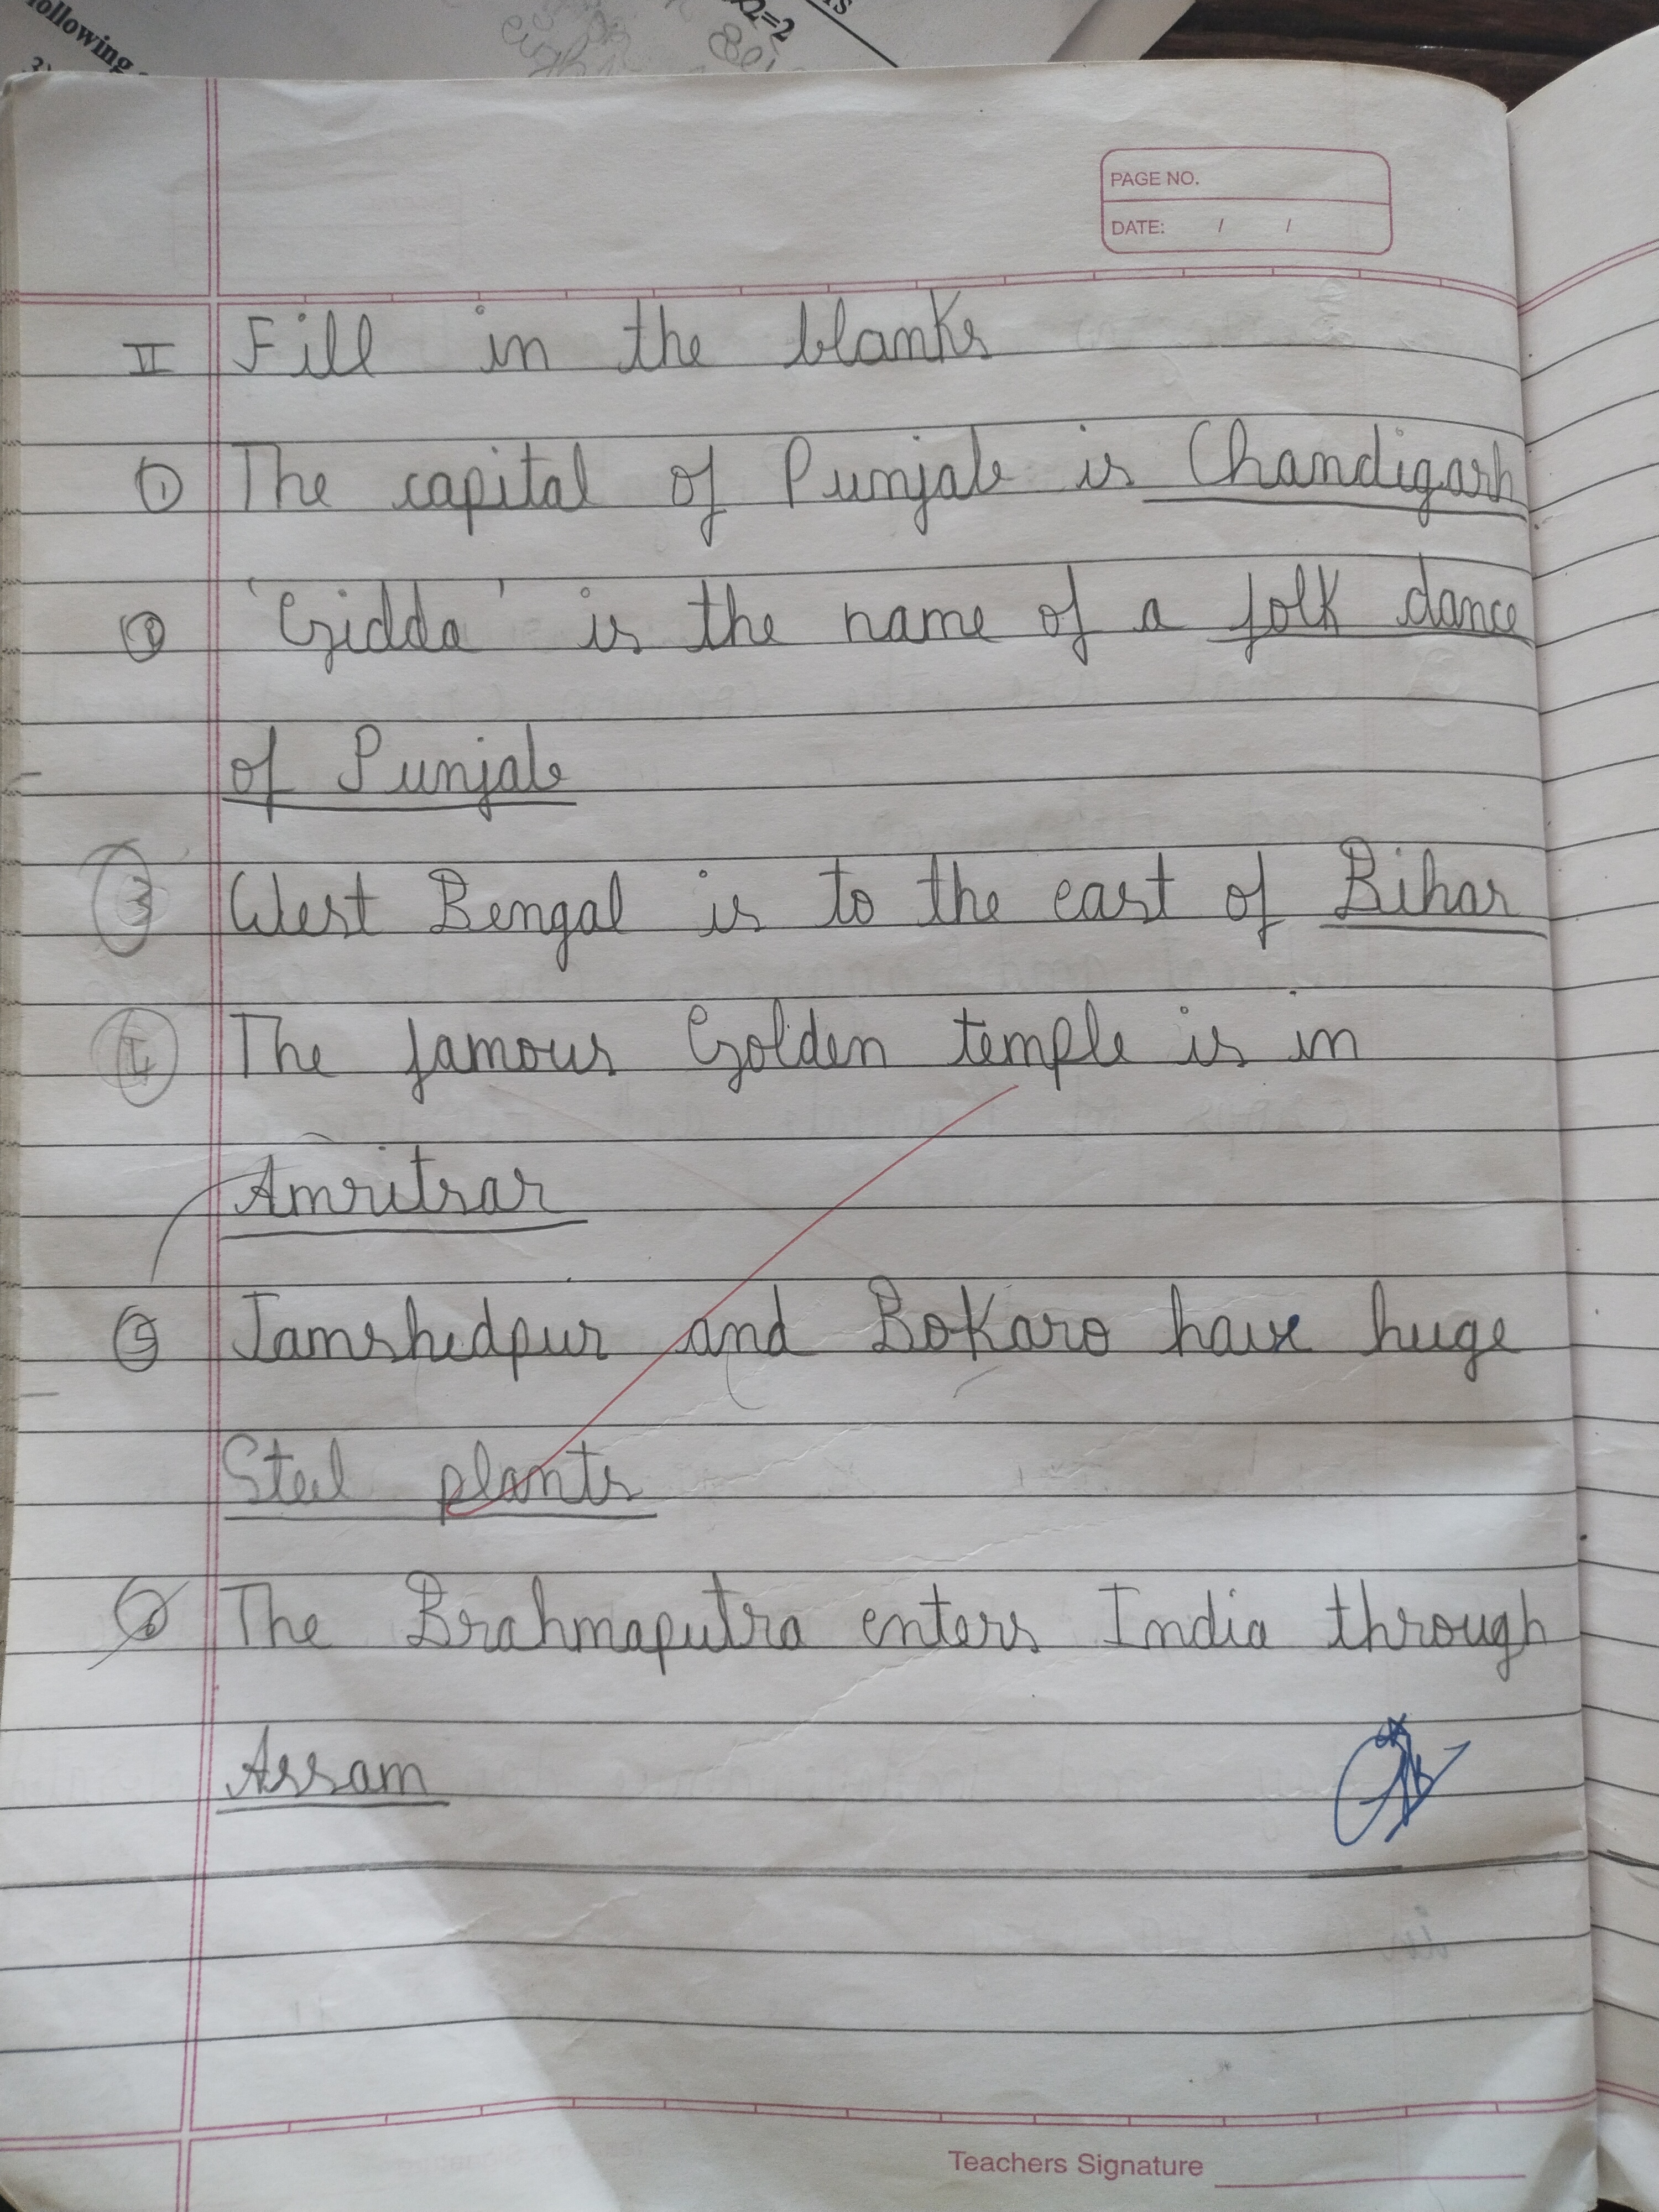 ollowing
3)
=2
PAGE NO.
DATE: / /
II Fill in the blanks
1 The capital of Punjab is Chandigarh
2 'Gidda' is the name of a folk dance
of Punjab
3 West Bengal is to the east of Bihar
4 The famous Golden temple is in
Amritsar
5 Jamshedpur and Bokaro have huge
Steel plants
6 The Brahmaputra enters India through
Assam
Teachers Signature